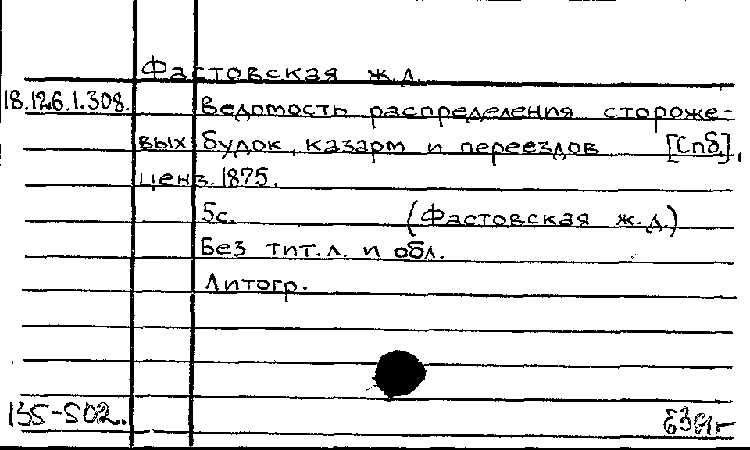 Фастовская ж.д.
18.126.1.308. Ведомость распределения стороже-
вых будок, казарм и переездов [Спб],
ценз. 1875.
5с. (Фастовская ж.д.)
Без тит.л. и обл.
Литогр.
135-502.